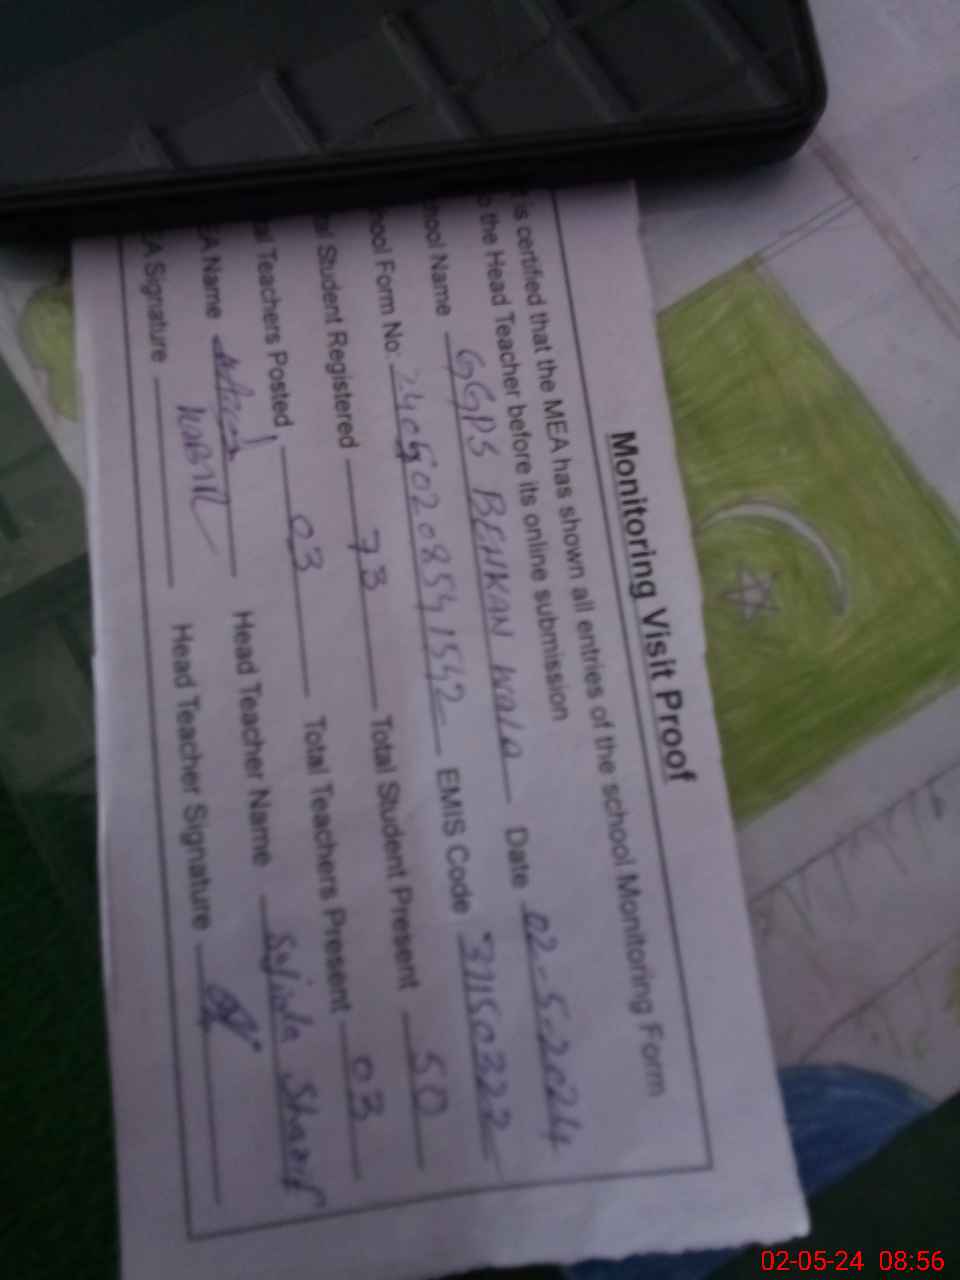 Monitoring Visit Proof
is certified that the MEA has shown all entries of the school Monitoring Form
the Head Teacher before its online submission
School Name GGPS BEHKAN WALA Date 02-5-2024
School Form No: EMIS Code 37150322
Student Registered 73 Total Student Present 50
Teachers Posted 03 Total Teachers Present 03
Name Head Teacher Name Sajida Sharif
Signature Head Teacher Signature
02-05-24 08:56